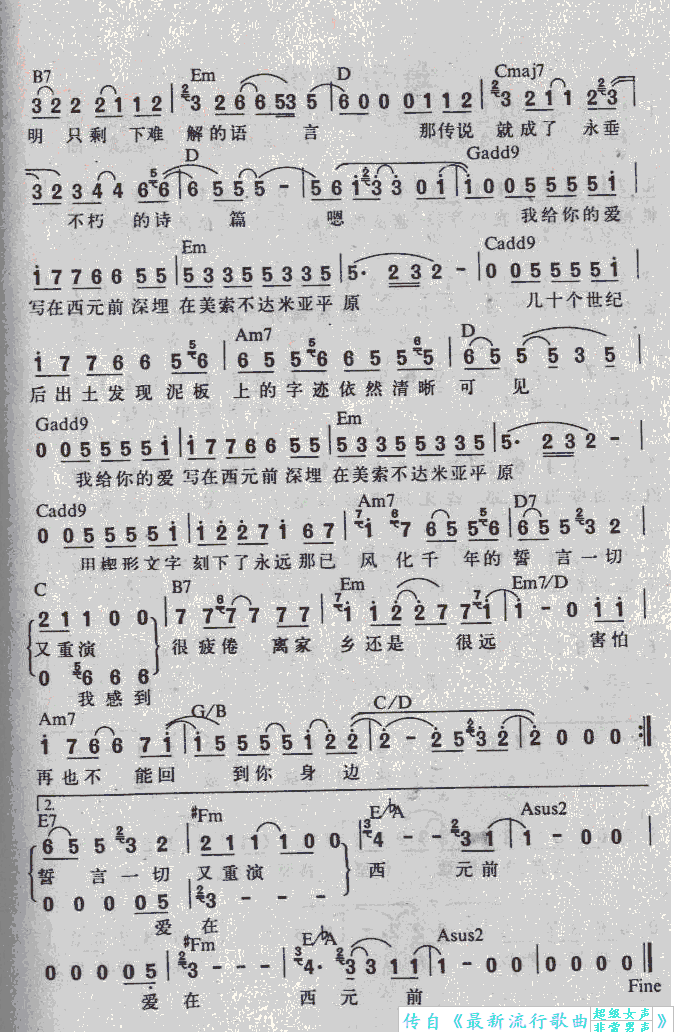 B7 Em D Cmaj7
3 2 2 2 1 1 2 3 2 6 6 5 3 5 6 0 0 0 1 1 2 3 2 1 1 2 3
明 只剩 下难 解的语 言 那传说 就成了 永垂
D Gadd9
3 2 3 4 4 6 6 6 5 5 5 - 5 6 1 3 3 0 1 1 0 0 5 5 5 5 1
不朽 的诗 篇 嗯 我给你的爱
Em Cadd9
1 7 7 7 6 6 5 5 5 3 3 5 5 3 3 5 5· 2 3 2 - 0 0 5 5 5 5 1
写在西元前深埋 在美索不达米亚平 原 几十个世纪
Am7 D
1 7 7 6 6 5 6 6 5 5 6 6 5 5 6 5 5 5 3 5
后出土发现泥板 上的字迹依然清晰 可 见
Gadd9 Em
0 0 5 5 5 5 1 1 7 7 7 6 6 5 5 5 3 3 5 5 3 3 5 5· 2 3 2 -
我给你的爱 写在西元前深埋 在美索不达米亚平 原
Cadd9 Am7 D7
0 0 5 5 5 5 1 1 2 2 7 1 6 7 1 7 6 5 5 6 6 5 5 3 2
用楔形文字 刻下了永远那已 风化千 年的誓 言一切
C B7 Em Em7/D
2 1 1 0 0 7 7 7 7 7 7 1 1 2 2 7 7 1 1 - 0 1 1
又重演 很疲倦 离家 乡还是 很远 害怕
0 6 6 6
我感到
Am7 G/B C/D
1 7 6 6 7 1 1 5 5 5 5 1 2 2 2 - 2 5 3 2 2 0 0 0
再也不 能回 到你身 边
2.
E7 #Fm E/bA Asus2
6 5 5 3 2 2 1 1 1 1 0 0 4 - - 3 1 1 - 0 0
誓 言一切 又重演 西 元前
0 0 0 0 5 3 - - -
爱 在
#Fm E/bA Asus2
0 0 0 0 5 3 - - - 4· 3 3 1 1 1 - 0 0 0 0 0 0
爱 在 西 元 前 Fine
传自《最新流行歌曲超级女声非常男声》